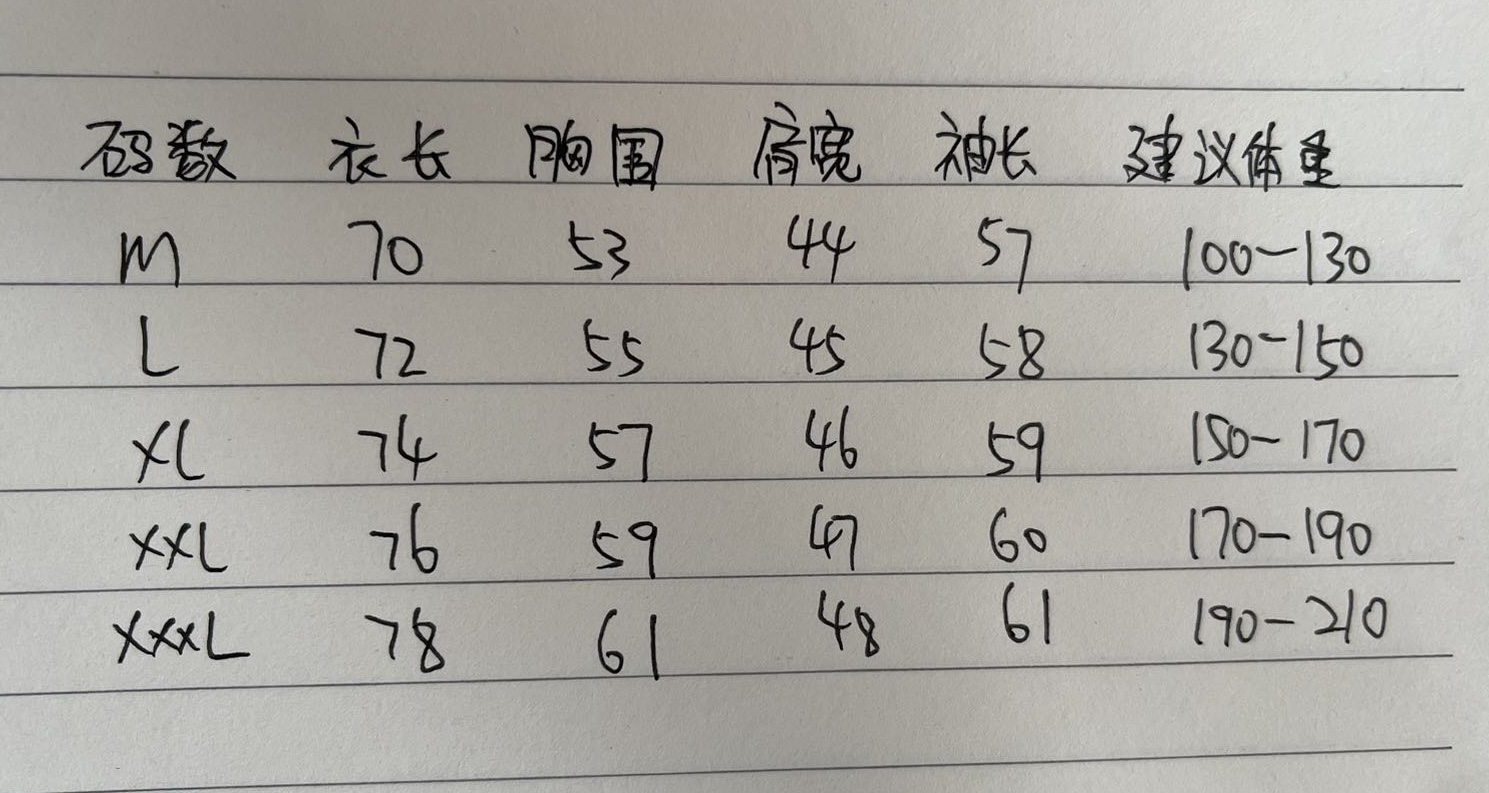 码数 衣长 胸围 肩宽 袖长 建议体重
M 70 53 44 57 100-130
L 72 55 45 58 130-150
XL 74 57 46 59 150-170
XXL 76 59 47 60 170-190
XXXL 78 61 48 61 190-210